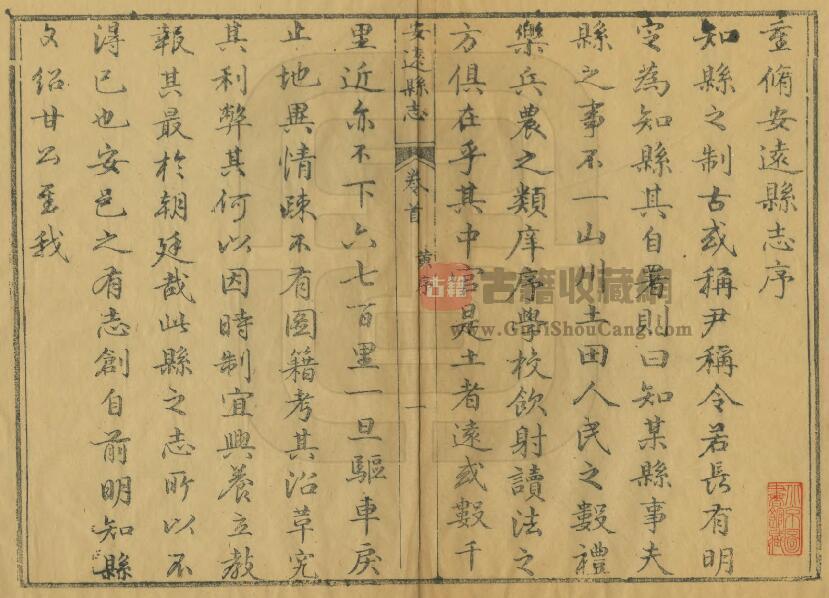 重脩安遠縣志序
知縣之制古或稱尹稱令若長有明
定為知縣其自署則曰知某縣事夫
縣之事不一山川土田人民之數禮
樂兵農之類庠序學校飲射讀法之
方俱在乎其中官是土者遠或數千
安遠縣志 卷首 黄序 一
里近亦不下六七百里一旦驅車戾
止地異情踈不有圖籍考其沿革究
其利弊其何以因時制宜興養立教
報其最於朝廷哉此縣之志所以不
得已也安邑之有志創自前明知縣
文紹甘公至我
古籍
古籍收藏網
www.GuJiShouCang.com